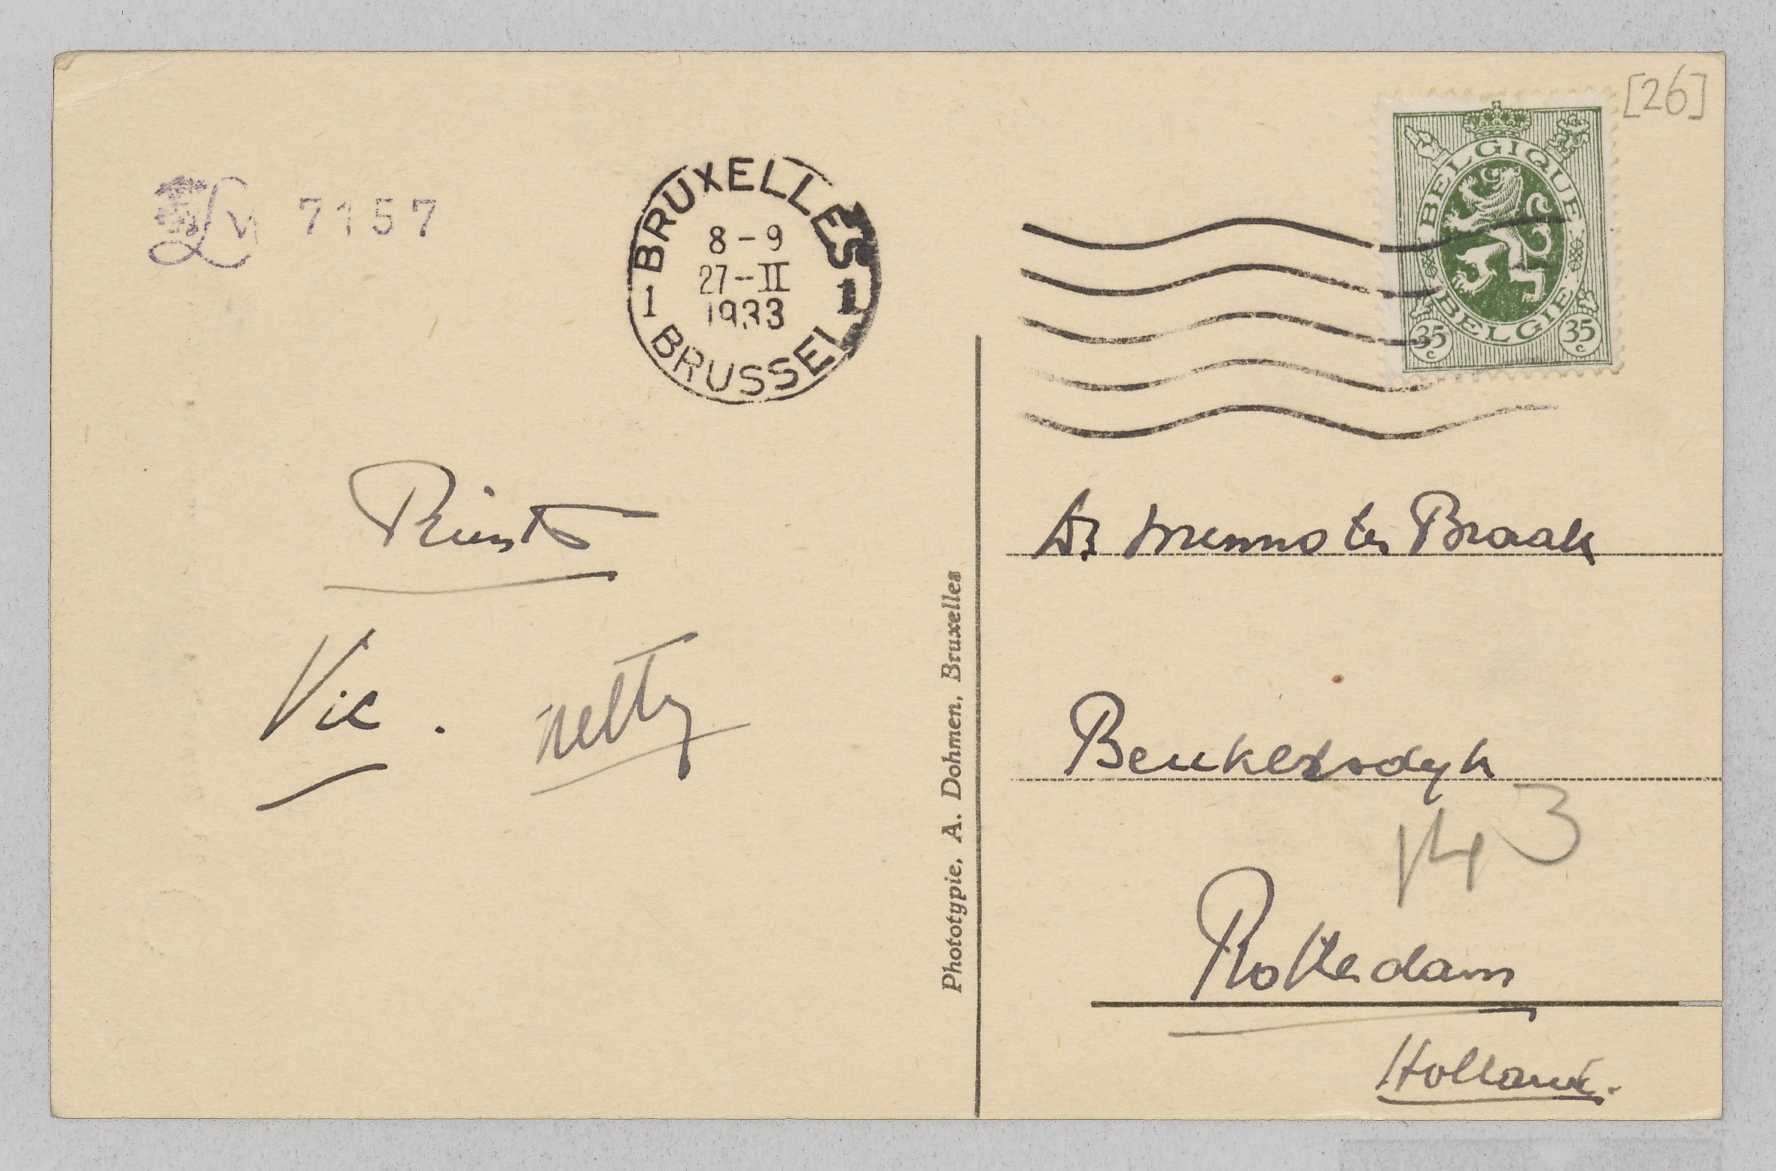 [26]
7157
BRUXELLES
1 8-9 1
27-II
1933
BRUSSEL
BELGIQUE
BELGIE
35 c 35 c
Vic. Netty
Phototypie. A. Dohmen, Bruxelles
Dr Menno ter Braak
Beukelsdyk
143
Rotterdam
Holland.